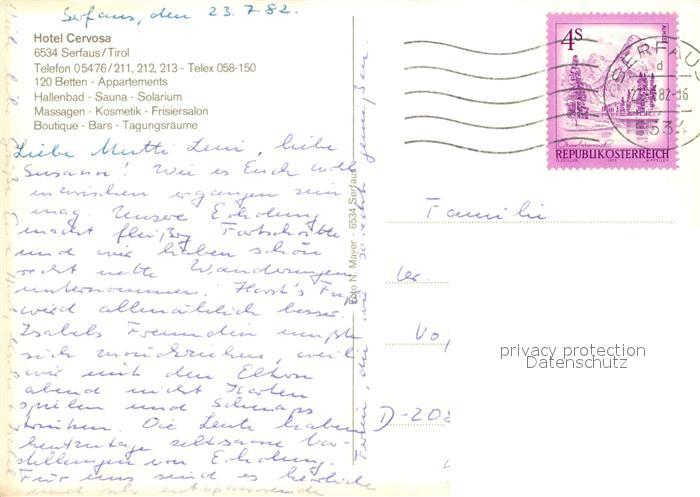 Serfaus, den 23.7.82.
Hotel Cervosa
6534 Serfaus/Tirol
Telefon 05476/211, 212, 213 - Telex 058-150
120 Betten - Appartements
Hallenbad - Sauna - Solarium
Massagen - Kosmetik - Frisiersalon
Boutique - Bars - Tagungsräume
Liebe Mutti Leni, liebe
Susann! Wie es Euch wohl
inzwischen ergangen sein
mag. Unsere Erholung
macht fleißig Fortschritte
und wir haben schon
recht nette Wanderungen
unternommen. Horst's Fuß
wird allmählich besser.
Isabels Freundin mußte
sich zurückziehen, weil
wir mit den Eltern
abend nicht Karten
spielen und Schnaps
trinken. Die Leute haben
heutzutage seltsame Vor-
stellungen von Erholung.
Für uns sind es herrliche
und sehr entspannende
Ferien, die wir so recht genießen.
Foto N. Mayer - 6534 Serfaus
4S
REPUBLIK ÖSTERREICH
SERFAUS
6534
Familie
Vo
D-208
privacy protection
Datenschutz